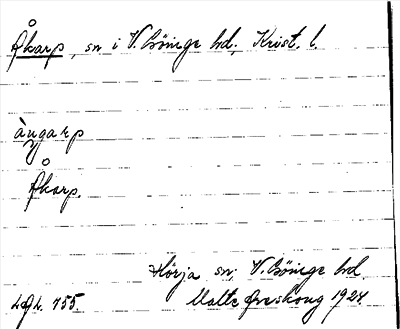 Åkarp, sn i V. Göinge hd, Krist. l.
àugarp
Åkarp.
Hörja sn, V. Göinge hd
Lgh. 155 Malte Areskoug 1924